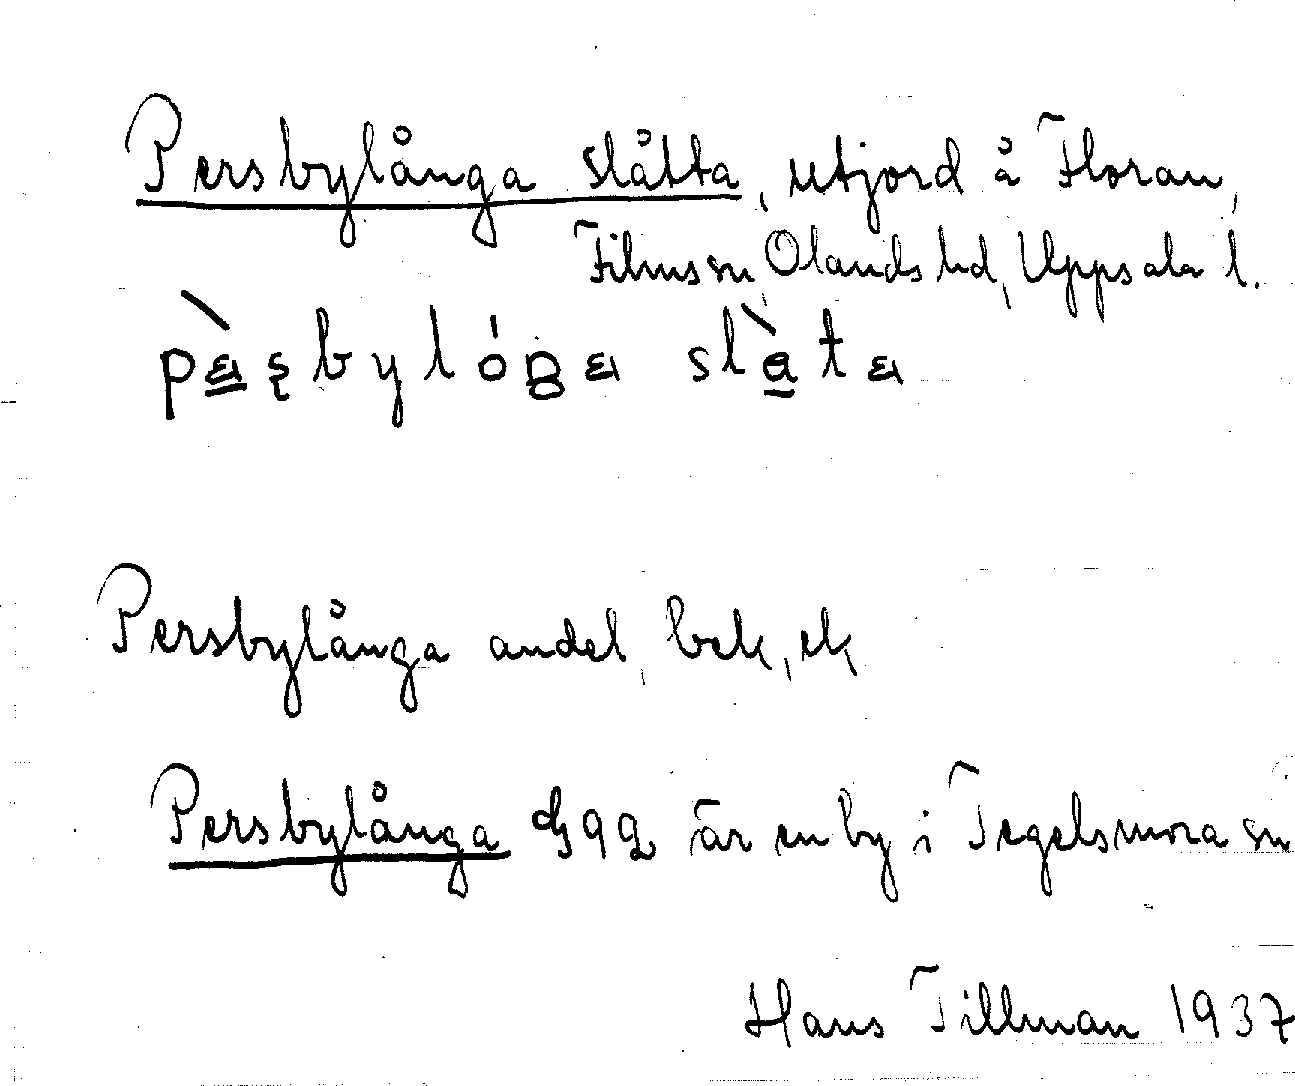 Persbylånga slåtta, utjord å Floran,
Films sn, Olands hd, Uppsala l.
Persbylånga andel, bek, ek
Persbylånga är en by i Tegelsmora sn
Hans Tillman 1937